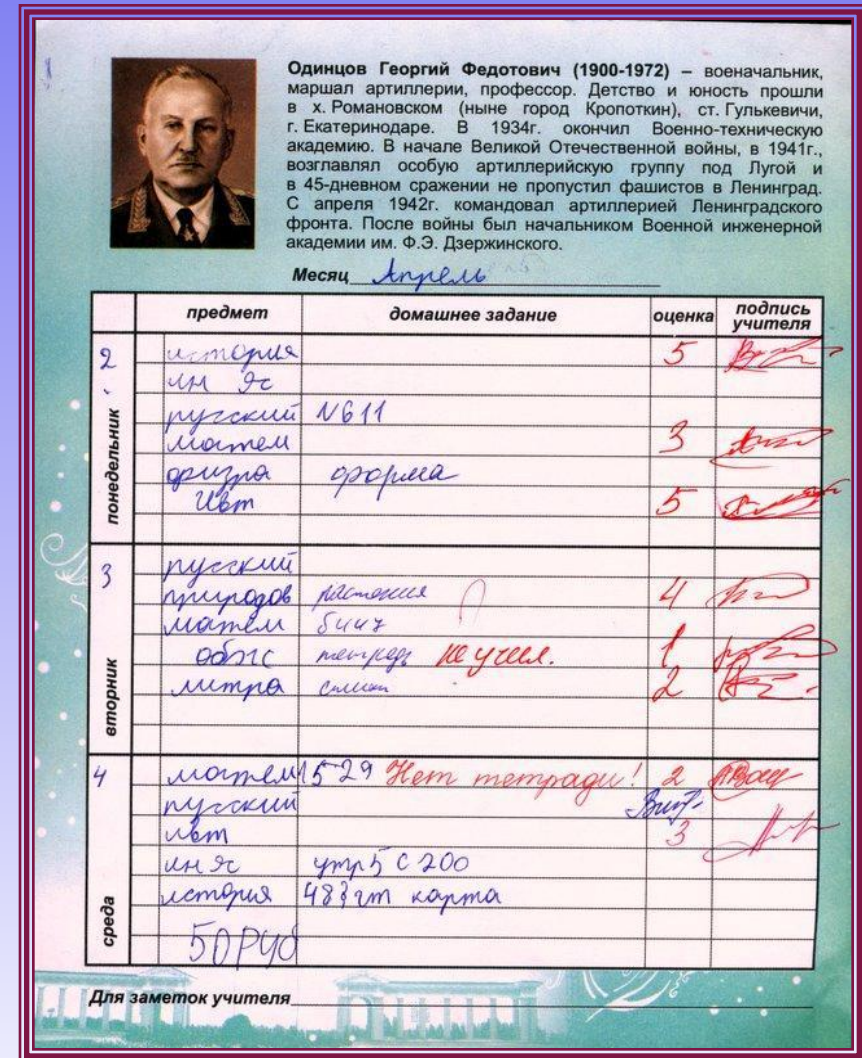 Одинцов Георгий Федотович (1900-1972) – военачальник,
маршал артиллерии, профессор. Детство и юность прошли
в х. Романовском (ныне город Кропоткин), ст. Гулькевичи,
г. Екатеринодаре. В 1934г. окончил Военно-техническую
академию. В начале Великой Отечественной войны, в 1941г.,
возглавлял особую артиллерийскую группу под Лугой и
в 45-дневном сражении не пропустил фашистов в Ленинград.
С апреля 1942г. командовал артиллерией Ленинградского
фронта. После войны был начальником Военной инженерной
академии им. Ф.Э. Дзержинского.
Месяц Апрель
предмет домашнее задание оценка подпись учителя
понедельник
2 история 5
ин яз
русский N611
матем 3
физра форма
ивт 5
вторник
3 русский
природов 4
матем
обж тетрадь не учил. 1
литра 2
среда
4 матем 1529 Нет тетради! 2
русский
ивт 3
ин яз упр5 с 200
история карта
50 руб
Для заметок учителя